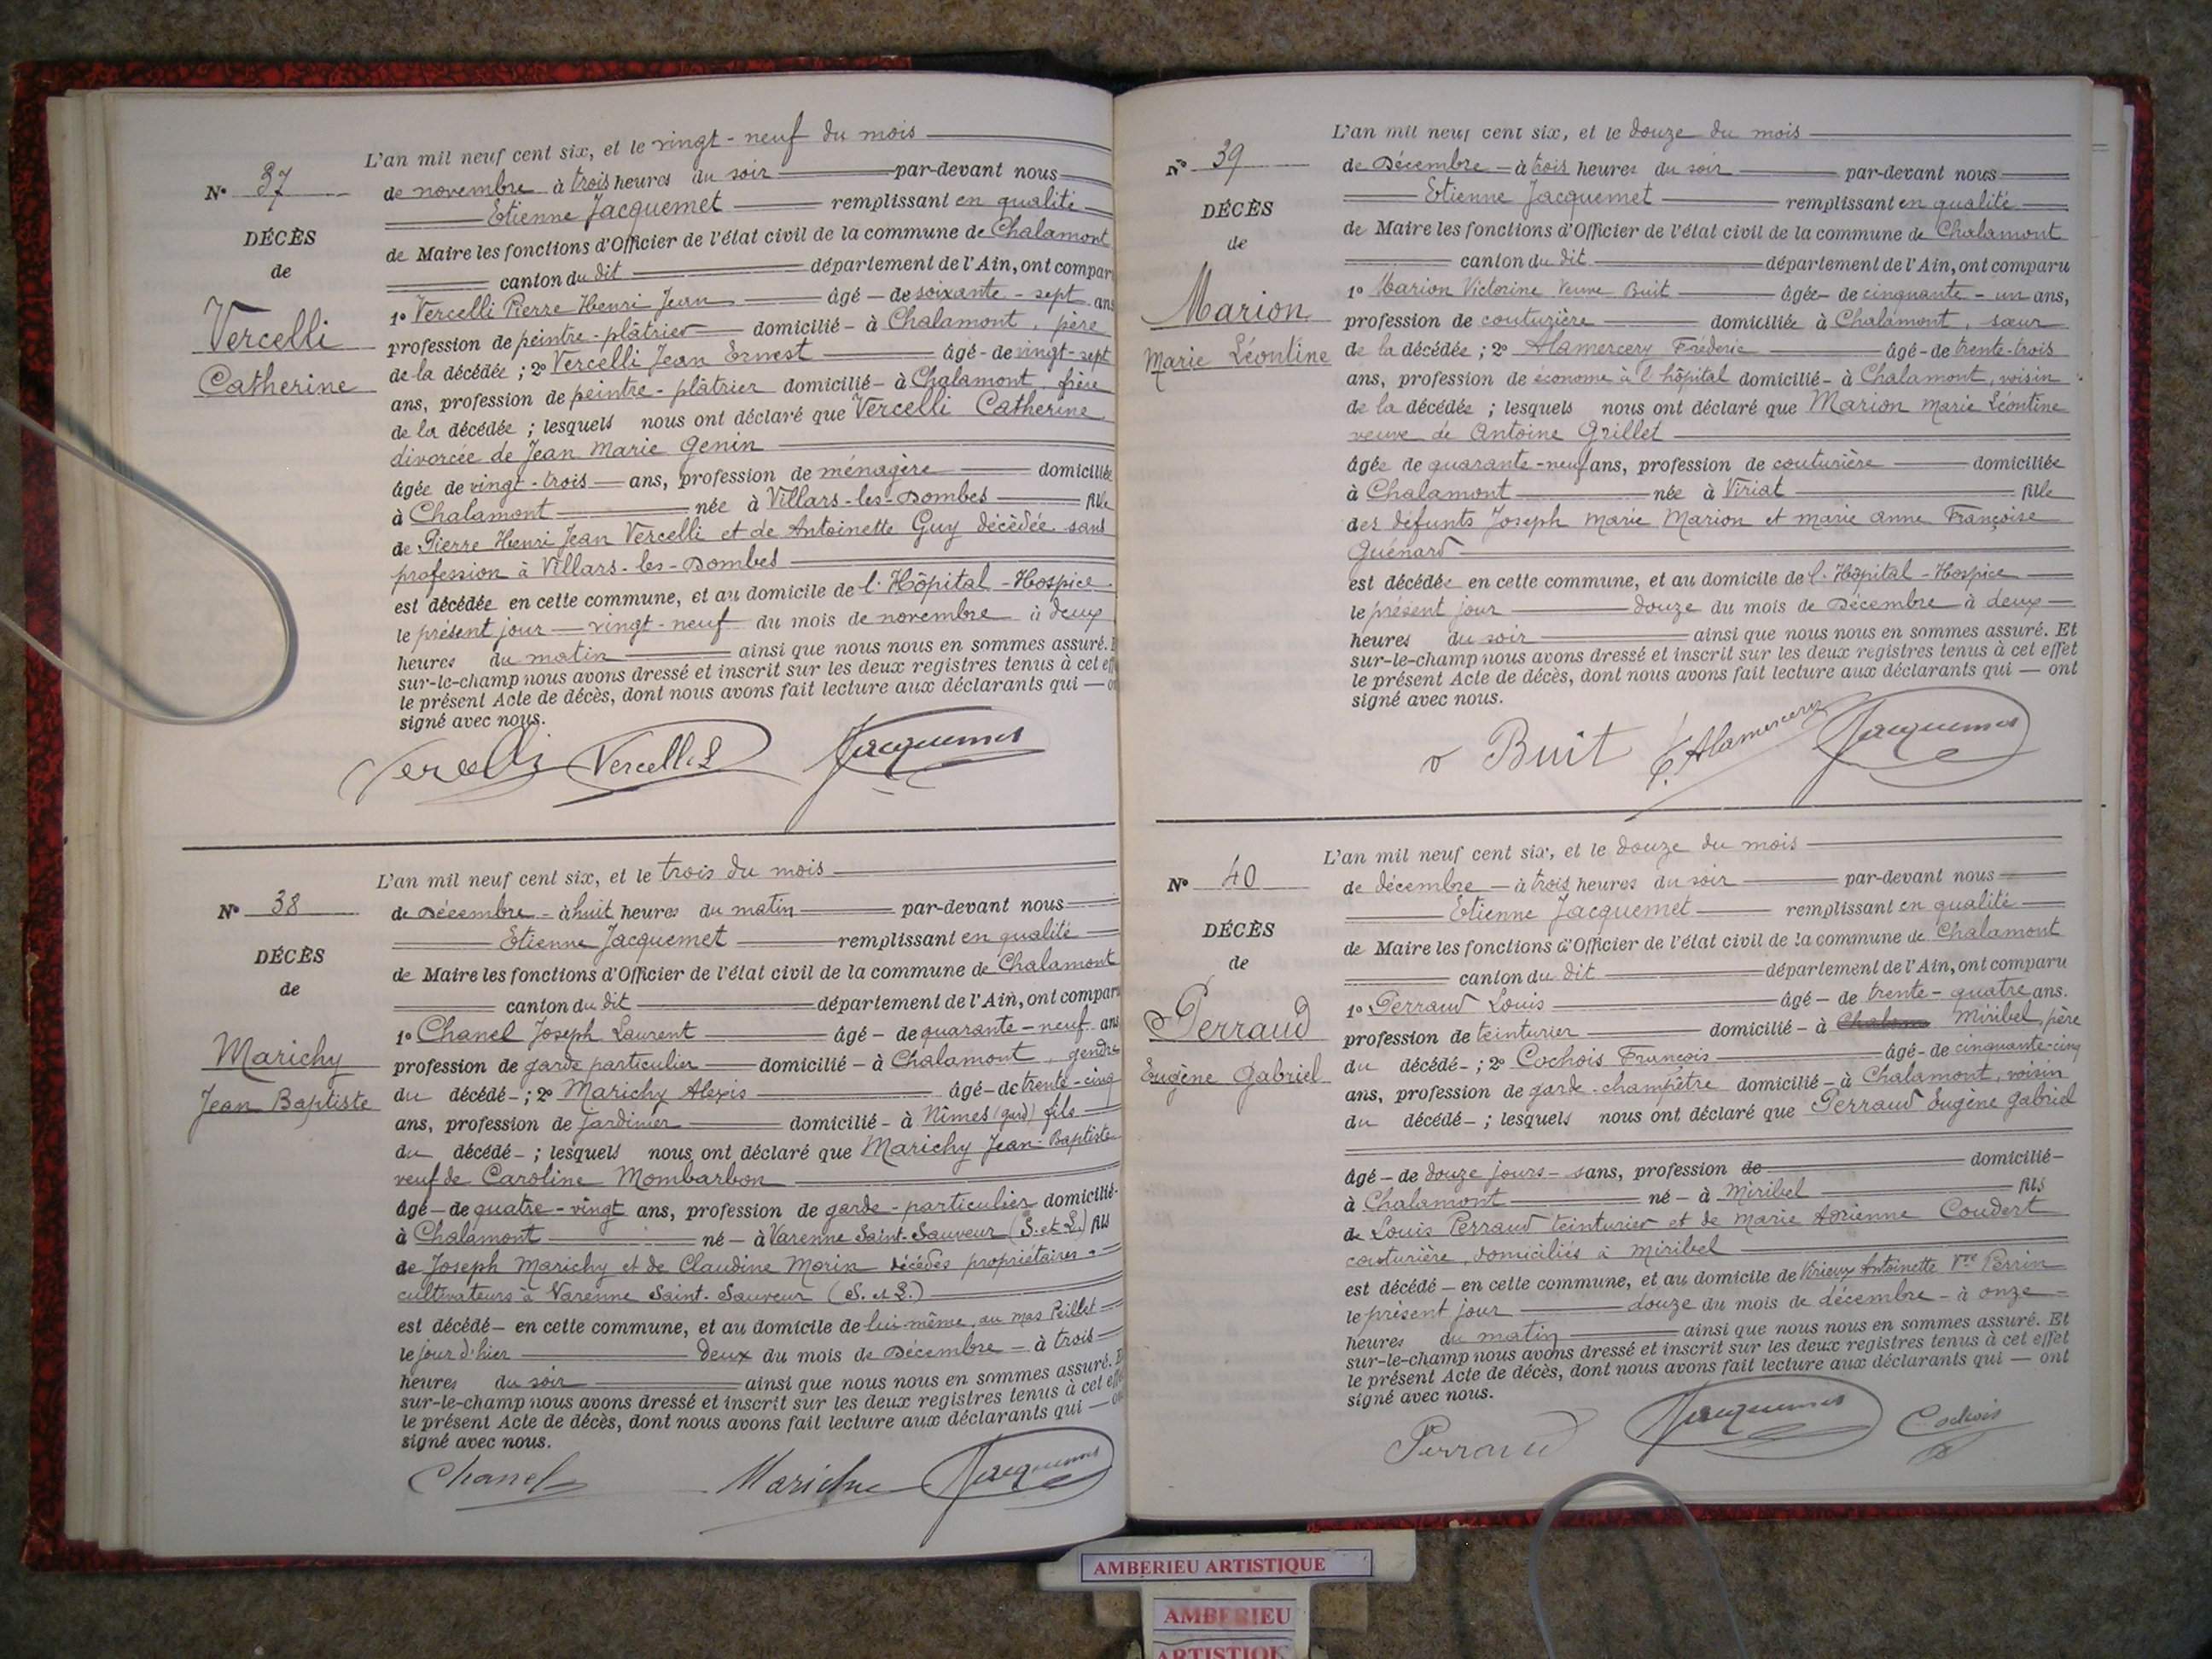 L'an mil neuf cent six, et le vingt-neuf du mois
N° 37
de novembre à trois heures du soir par-devant nous
Etienne Jacquemet remplissant en qualité
DÉCÈS
de Maire les fonctions d'Officier de l'état civil de la commune de Chalamont
de
canton du dit département de l'Ain, ont comparu
1° Vercelli Pierre Henri Jean âgé de soixante-sept ans
Vercelli
profession de peintre-plâtrier domicilié à Chalamont, père
Catherine
de la décédée ; 2° Vercelli Jean Ernest âgé de vingt-sept
ans, profession de peintre-plâtrier domicilié à Chalamont, frère
de la décédée ; lesquels nous ont déclaré que Vercelli Catherine
divorcée de Jean Marie Genin
âgée de vingt-trois ans, profession de ménagère domiciliée
à Chalamont née à Villars-les-Dombes fille
de Pierre Henri Jean Vercelli et de Antoinette Guy décédée sans
profession à Villars-les-Dombes
est décédée en cette commune, et au domicile de l'Hôpital-Hospice
le présent jour vingt-neuf du mois de novembre à deux
heures du matin ainsi que nous nous en sommes assuré. E
sur-le-champ nous avons dressé et inscrit sur les deux registres tenus à cet eff
le présent Acte de décès, dont nous avons fait lecture aux déclarants qui — on
signé avec nous.
Vercelli Vercelli Jacquemet
L'an mil neuf cent six, et le trois du mois
N° 38
de Décembre à huit heures du matin par-devant nous
Etienne Jacquemet remplissant en qualité
DÉCÈS
de Maire les fonctions d'Officier de l'état civil de la commune de Chalamont
de
canton du dit département de l'Ain, ont comparu
1° Chanel Joseph Laurent âgé de quarante-neuf ans
Marichy
profession de garde particulier domicilié à Chalamont, gendre
Jean Baptiste
du décédé ; 2° Marichy Alexis âgé de trente-cinq
ans, profession de jardinier domicilié à Nîmes (Gard) fils
du décédé ; lesquels nous ont déclaré que Marichy Jean-Baptiste
veuf de Caroline Mombarbon
âgé de quatre-vingt ans, profession de garde-particulier domicilié
à Chalamont né à Varenne Saint-Sauveur (S. et L.) fils
de Joseph Marichy et de Claudine Morin décédés propriétaires
cultivateurs à Varenne Saint-Sauveur (S. et L.)
est décédé en cette commune, et au domicile de lui même, au mas Peillet
le jour d'hier deux du mois de Décembre à trois
heures du soir ainsi que nous nous en sommes assuré. E
sur-le-champ nous avons dressé et inscrit sur les deux registres tenus à cet eff
le présent Acte de décès, dont nous avons fait lecture aux déclarants qui — on
signé avec nous.
Chanel Marichy Jacquemet
L'an mil neuf cent six, et le douze du mois
N° 39
de Décembre à trois heures du soir par-devant nous
Etienne Jacquemet remplissant en qualité
DÉCÈS
de Maire les fonctions d'Officier de l'état civil de la commune de Chalamont
de
canton du dit département de l'Ain, ont comparu
1° Marion Victorine Veuve Buit âgée de cinquante-un ans,
Marion
profession de couturière domiciliée à Chalamont, sœur
Marie Léontine
de la décédée ; 2° Alamercery Fréderic âgé de trente-trois
ans, profession de économe à l'hôpital domicilié à Chalamont, voisin
de la décédée ; lesquels nous ont déclaré que Marion Marie Léontine
veuve de Antoine Grillet
âgée de quarante-neuf ans, profession de couturière domiciliée
à Chalamont née à Viriat fille
des défunts Joseph Marie Marion et Marie Anne Françoise
Guénard
est décédée en cette commune, et au domicile de l'Hôpital-Hospice
le présent jour douze du mois de Décembre à deux
heures du soir ainsi que nous nous en sommes assuré. Et
sur-le-champ nous avons dressé et inscrit sur les deux registres tenus à cet effet
le présent Acte de décès, dont nous avons fait lecture aux déclarants qui — ont
signé avec nous.
v Buit F. Alamercery Jacquemet
L'an mil neuf cent six, et le douze du mois
N° 40
de décembre à trois heures du soir par-devant nous
Etienne Jacquemet remplissant en qualité
DÉCÈS
de Maire les fonctions d'Officier de l'état civil de la commune de Chalamont
de
canton du dit département de l'Ain, ont comparu
1° Perraud Louis âgé de trente-quatre ans.
Perraud
profession de teinturier domicilié à Miribel, père
Eugène Gabriel
du décédé ; 2° Cochois François âgé de cinquante-cinq
ans, profession de garde-champêtre domicilié à Chalamont, voisin
du décédé ; lesquels nous ont déclaré que Perraud Eugène Gabriel
âgé de douze jours sans, profession de domicilié
à Chalamont né à Miribel fils
de Louis Perraud teinturier et de Marie Adrienne Coudert
couturière, domiciliés à Miribel
est décédé en cette commune, et au domicile de Virieux Antoinette Vve Perrin
le présent jour douze du mois de décembre à onze
heures du matin ainsi que nous nous en sommes assuré. Et
sur-le-champ nous avons dressé et inscrit sur les deux registres tenus à cet effet
le présent Acte de décès, dont nous avons fait lecture aux déclarants qui — ont
signé avec nous.
Perraud Jacquemet Cochois
AMBERIEU ARTISTIQUE
AMBERIEU
ARTISTIQUE